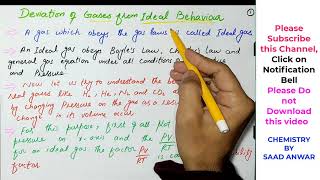 Deviation of Gases from Ideal Behaviour
A gas which obeys the gas laws is called Ideal gas
An Ideal gas obeys Boyle's Law, Law and
general gas equation under all conditions of
and Pressure
Now let us try to understand the
real gases like He, H2, N2 and CO2
by changing Pressure on the gas as a
change in its volume occur.
For this purpose, first of all plot
pressure on x-axis and the PV/RT
for an ideal gas the factor PV/RT is
factor
Please
Subscribe
this Channel,
Click on
Notification
Bell
Please Do
not
Download
this video
CHEMISTRY
BY
SAAD ANWAR